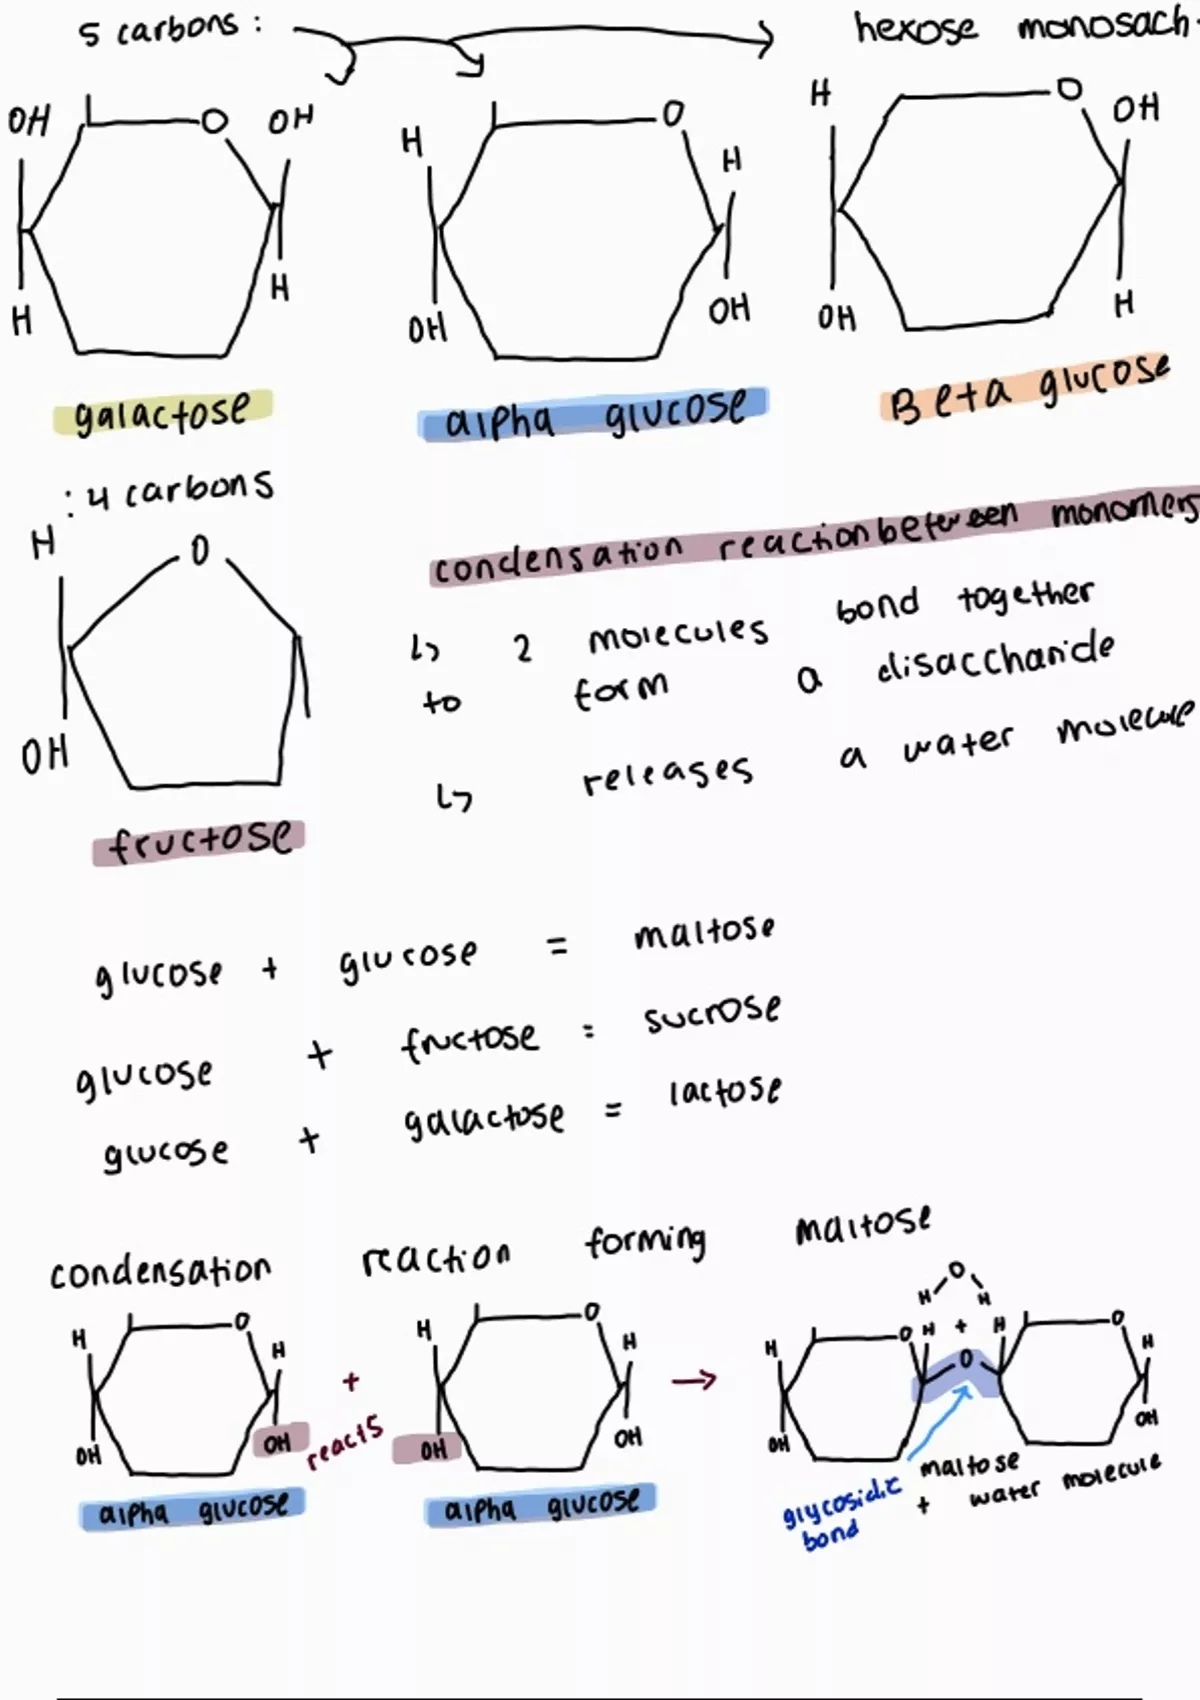 5 carbons :
hexose monosach
OH O OH
H H
galactose
H O H
OH OH
alpha glucose
H O OH
OH H
Beta glucose
: 4 carbons
H O
OH
fructose
condensation reaction between monomers
↳ 2 molecules bond together
to form a disaccharide
↳ releases a water molecule
glucose + glucose = maltose
glucose + fructose = sucrose
glucose + galactose = lactose
condensation reaction forming maltose
H O H
OH OH
alpha glucose
+
reacts
H O H
OH OH
alpha glucose
→
H O H
H O H + H O H
O
OH OH
glycosidic
bond
maltose
+ water molecule